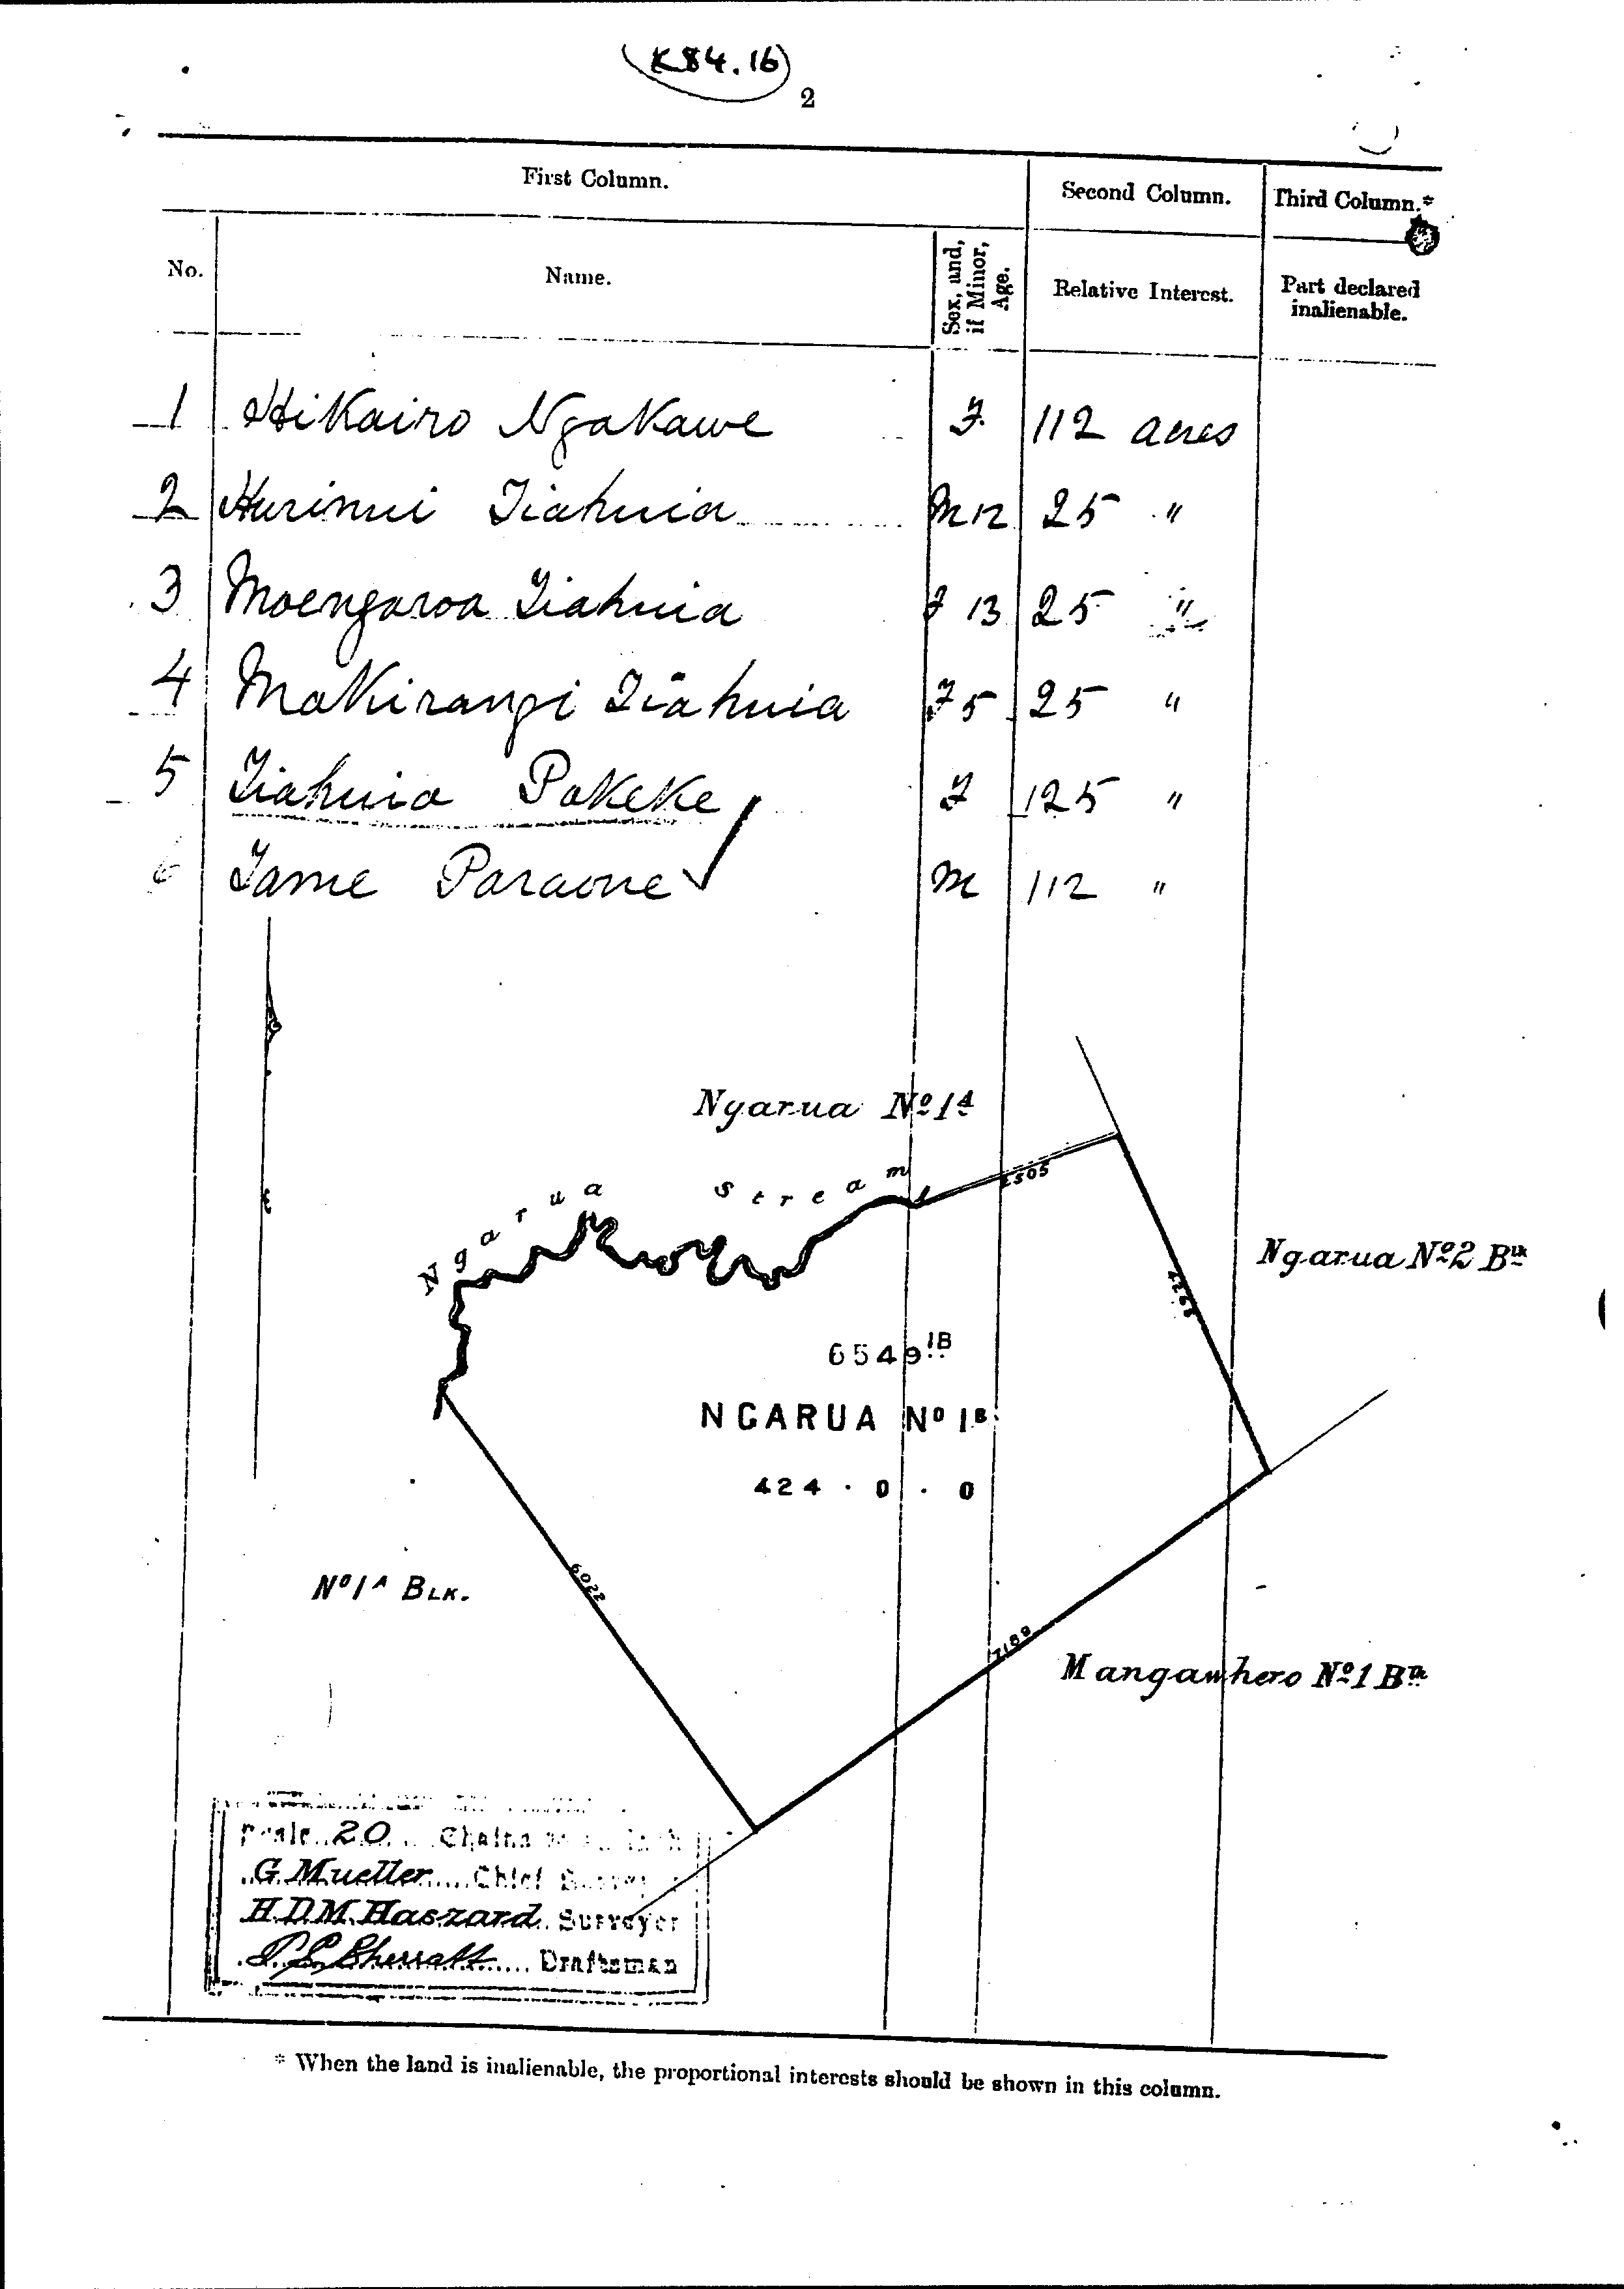 K84.16
2
First Column. Second Column. Third Column.*
No. Name. Sex, and, if Minor, Age. Relative Interest. Part declared inalienable.
1 Hikairo Ngakawe F. 112 acres
2 Hurinui Tiahuia M 12 25 "
3 Moengaroa Tiahuia F 13 25 "
4 Makirangi Tiahuia F 5 25 "
5 Tiahuia Pakeke F 125 "
6 Tame Paraone M 112 "
Ngarua Nº 1A
Ngarua Stream
2505
Ngarua Nº 2 Bk
6549 1B
NGARUA Nº 1B
424 . 0 . 0
Nº 1A BLK.
6022
7189
Mangawhero Nº 1 Bk
Scale 20 Chains to an Inch
G. Mueller Chief Surveyor
H.D.M. Haszard Surveyor
Sherratt Draftsman
* When the land is inalienable, the proportional interests should be shown in this column.